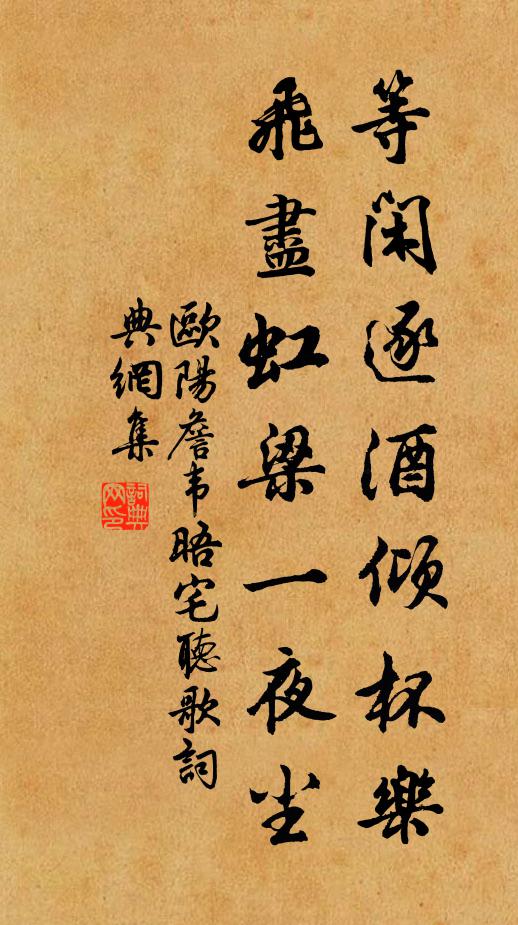 等閑逐酒傾杯樂
飛盡虹梁一夜尘
歐陽詹韦晤宅聽歌詞
典網集
詞典
网印